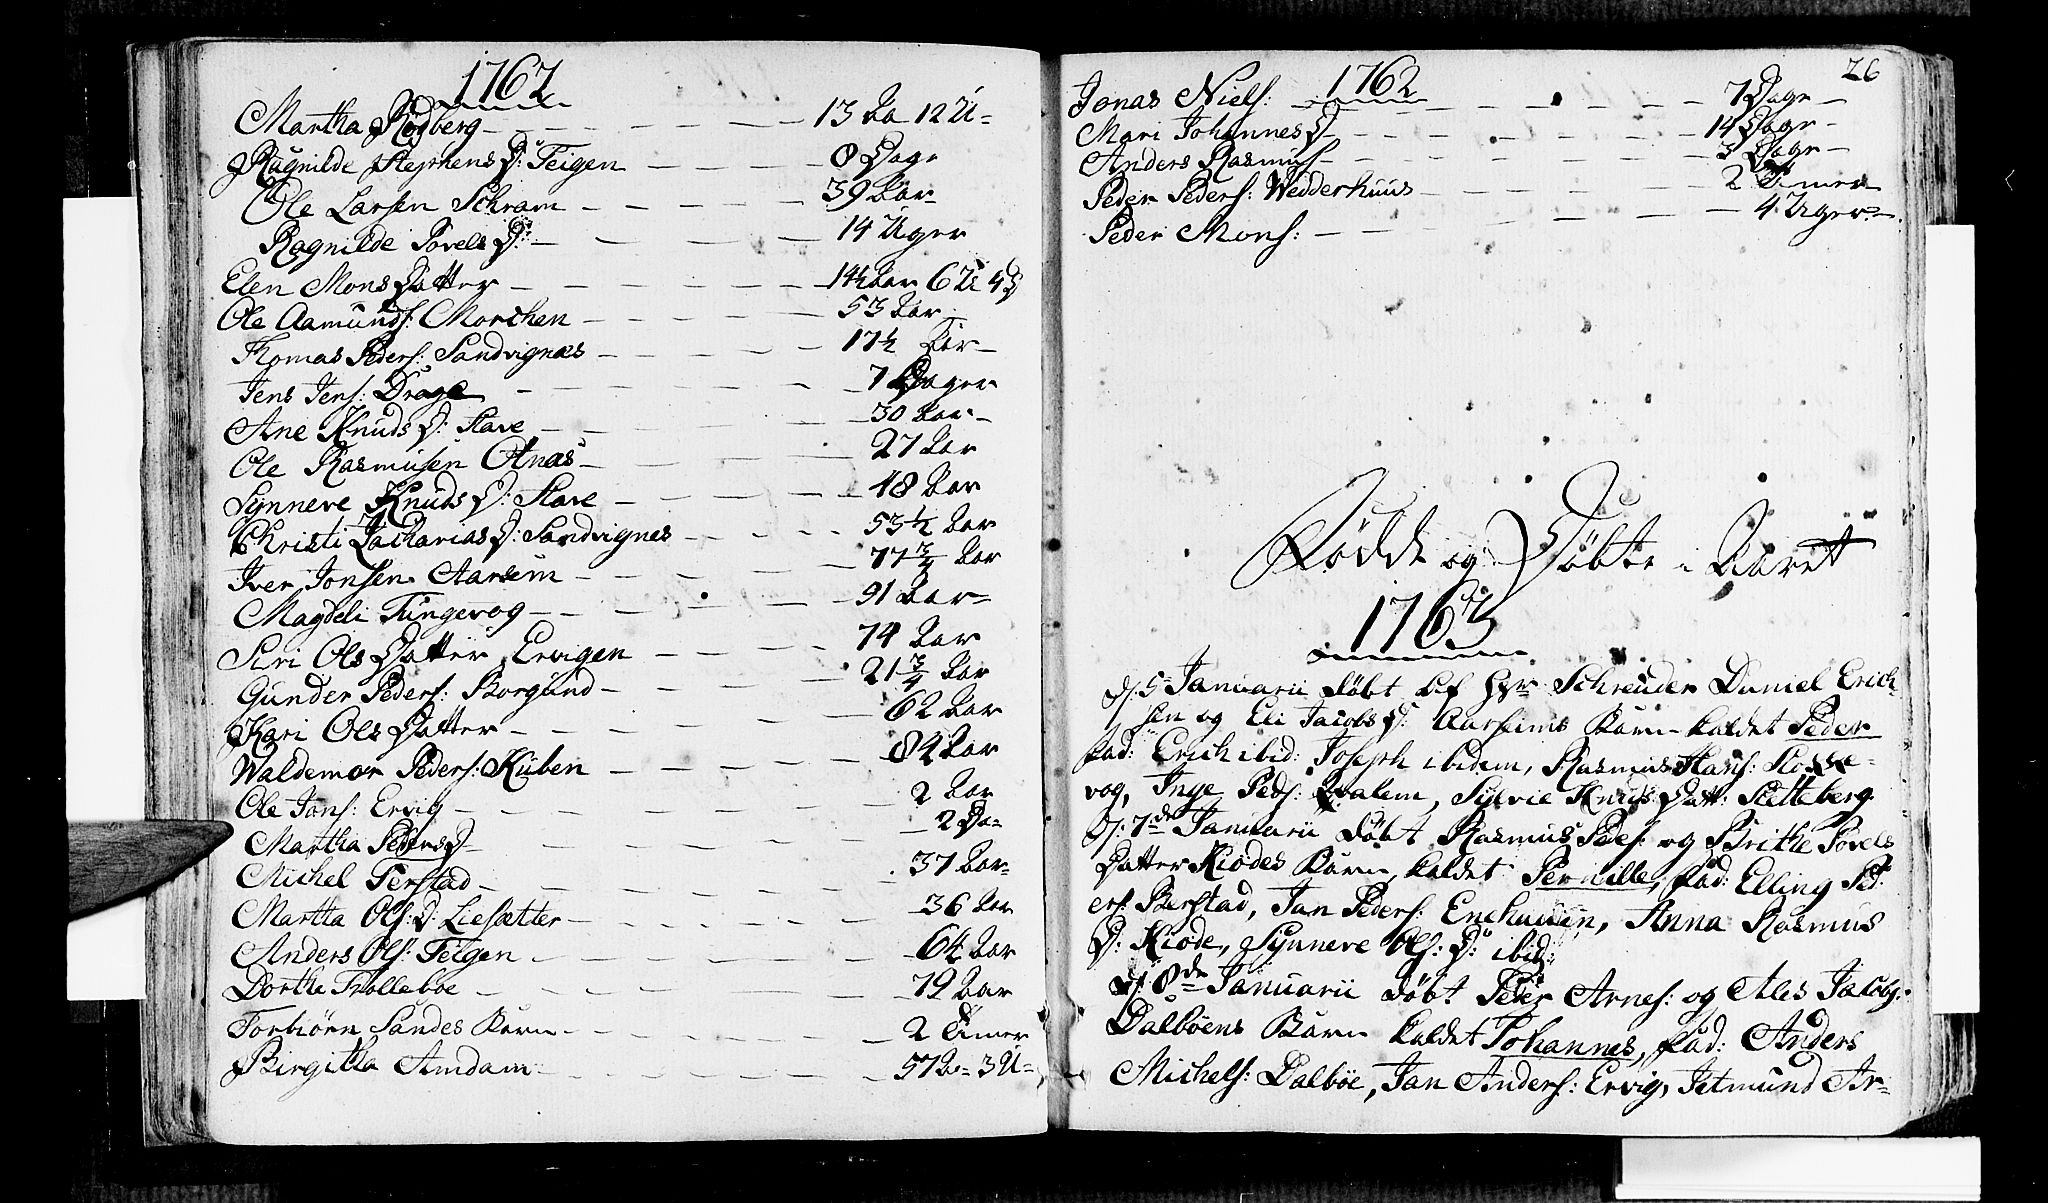 1762
Martha Rødberg 13 Aa 12 U
Ragnilde Stephens D: Teigen 8 Dage
Ole Larsen Schram 39 Aar
Ragnilde Povels D: 14 Uger
Elen Mons Datter 14½ Aar 6 U 4 D
Ole Aamunds: Morchen 53 Aar
Thomas Peders: Sandvignæs 17½ Aar
Jens Jens: Drage 7 Dager
Ane Knuds D: Stave 30 Aar
Ole Rasmusen Otnæs 27 Aar
Synneve Knuds D: Stave 48 Aar
Christi Zacharias D: Sandvignes 53½ Aar
Iver Jonsen Aarsem 77¾ Aar
Magdeli Tungevog 91 Aar
Siri Ols Datter Ervigen 74 Aar
Gunder Peders: Borgund 21¾ Aar
Kari Ols Datter 62 Aar
Waldemor Peders: Kuben 84 Aar
Ole Jans: Ervig 2 Aar
Martha Peders D 2 Da
Michel Ferstad 37 Aar
Martha Ols: D: Liesætter 36 Aar
Anders Ols: Teigen 64 Aar
Dorthe Trolleboe 79 Aar
Torbiørn Sandes Barn 2 Timer
Birgitha Amdam 57 A 3 U
26
1762
Jonas Niels: 7 Dage
Mari Johannes D 14 Dage
Anders Rasmus 3 Dage
Peder Peders: Wedderhuus 2 Timer
Peder Mons: 4 Uger
Fødde og Døbte i Aaret
1763
D: 5 Januarii døbt af Hr Schreuder Daniel Erich
sen og Eli Jacobs D: Aarseims Barn kaldet Peder
fad: Erich ibid: Joseph ibidem, Rasmus Hans: Stosse-
vog, Inge Peds: Qvalem, Sylvie Knuds Datt: Sætteberg
D: 7de Januarii døbt Rasmus Peds: og Brithe Povels
Datter Kiødes Barn, kaldet Pernille, fad: Elling Ped:
ers: Berstad, Jan Peders: Enehauen, Anna Rasmus
D: Kiøde, Synneve Ols: D: ibid:
d: 8de Januarii døbt Peder Arnes: og Ales Jacobs:
Dalbøens Barn kaldet Johannes, fad: Anders
Michels: Dalbøe, Jan Anders: Ervig, Jetmund Ar-